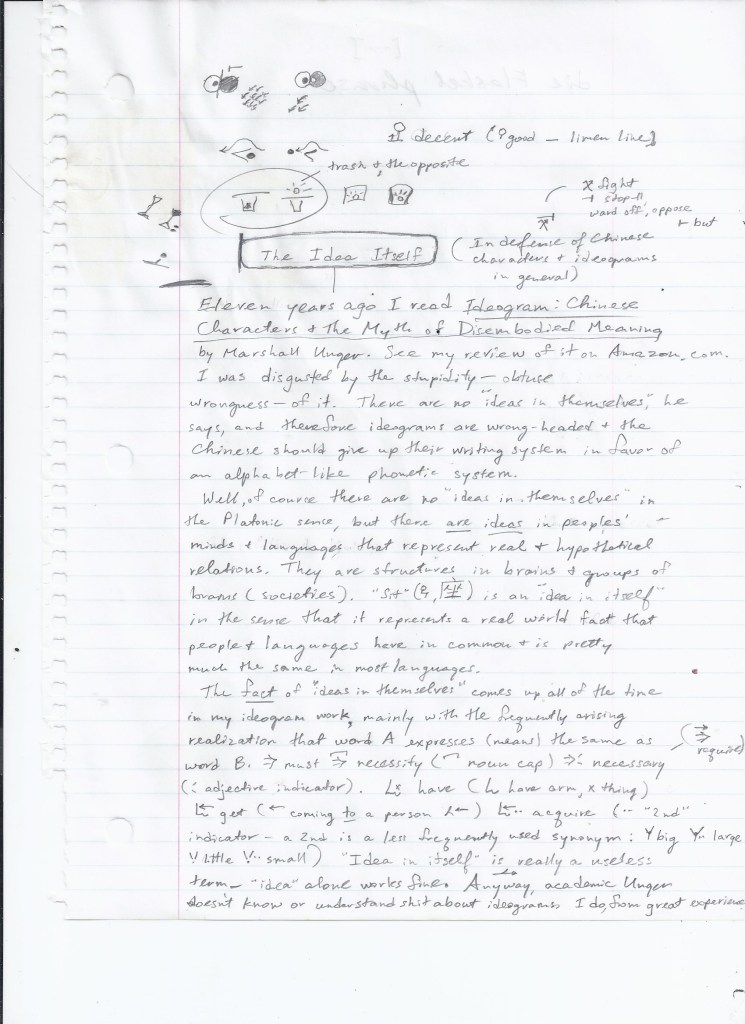 decent (? good — limen line)
trash & the opposite
x fight
+ stop-it
ward off, oppose
+ but
The Idea Itself
(In defense of Chinese
characters + ideograms
in general)
Eleven years ago I read Ideogram: Chinese
Characters & The Myth of Disembodied Meaning
by Marshall Unger. See my review of it on Amazon.com.
I was disgusted by the stupidity — obtuse
wrongness — of it. There are no "ideas in themselves," he
says, and therefore ideograms are wrong-headed + the
Chinese should give up their writing system in favor of
an alphabet-like phonetic system.
Well, of course there are no "ideas in themselves" in
the Platonic sense, but there are ideas in peoples'
minds + languages that represent real + hypothetical
relations. They are structures in brains & groups of
brains (societies). "Sit" (坐) is an "idea in itself"
in the sense that it represents a real world fact that
people + languages have in common + is pretty
much the same in most languages.
The fact of "ideas in themselves" comes up all of the time
in my ideogram work, mainly with the frequently arising
realization that word A expresses (means) the same as
require)
word B. must necessity (noun cap) necessary
(: adjective indicator). have (have arm, x thing)
get (← coming to a person) acquire (·· "2nd"
indicator — a 2nd is a less frequently used synonym: Y big Y·· large
little small) "Idea in itself" is really a useless
term — "idea" alone works fine. Anyway, academic Unger
doesn't know or understand shit about ideograms. I do, from great experience